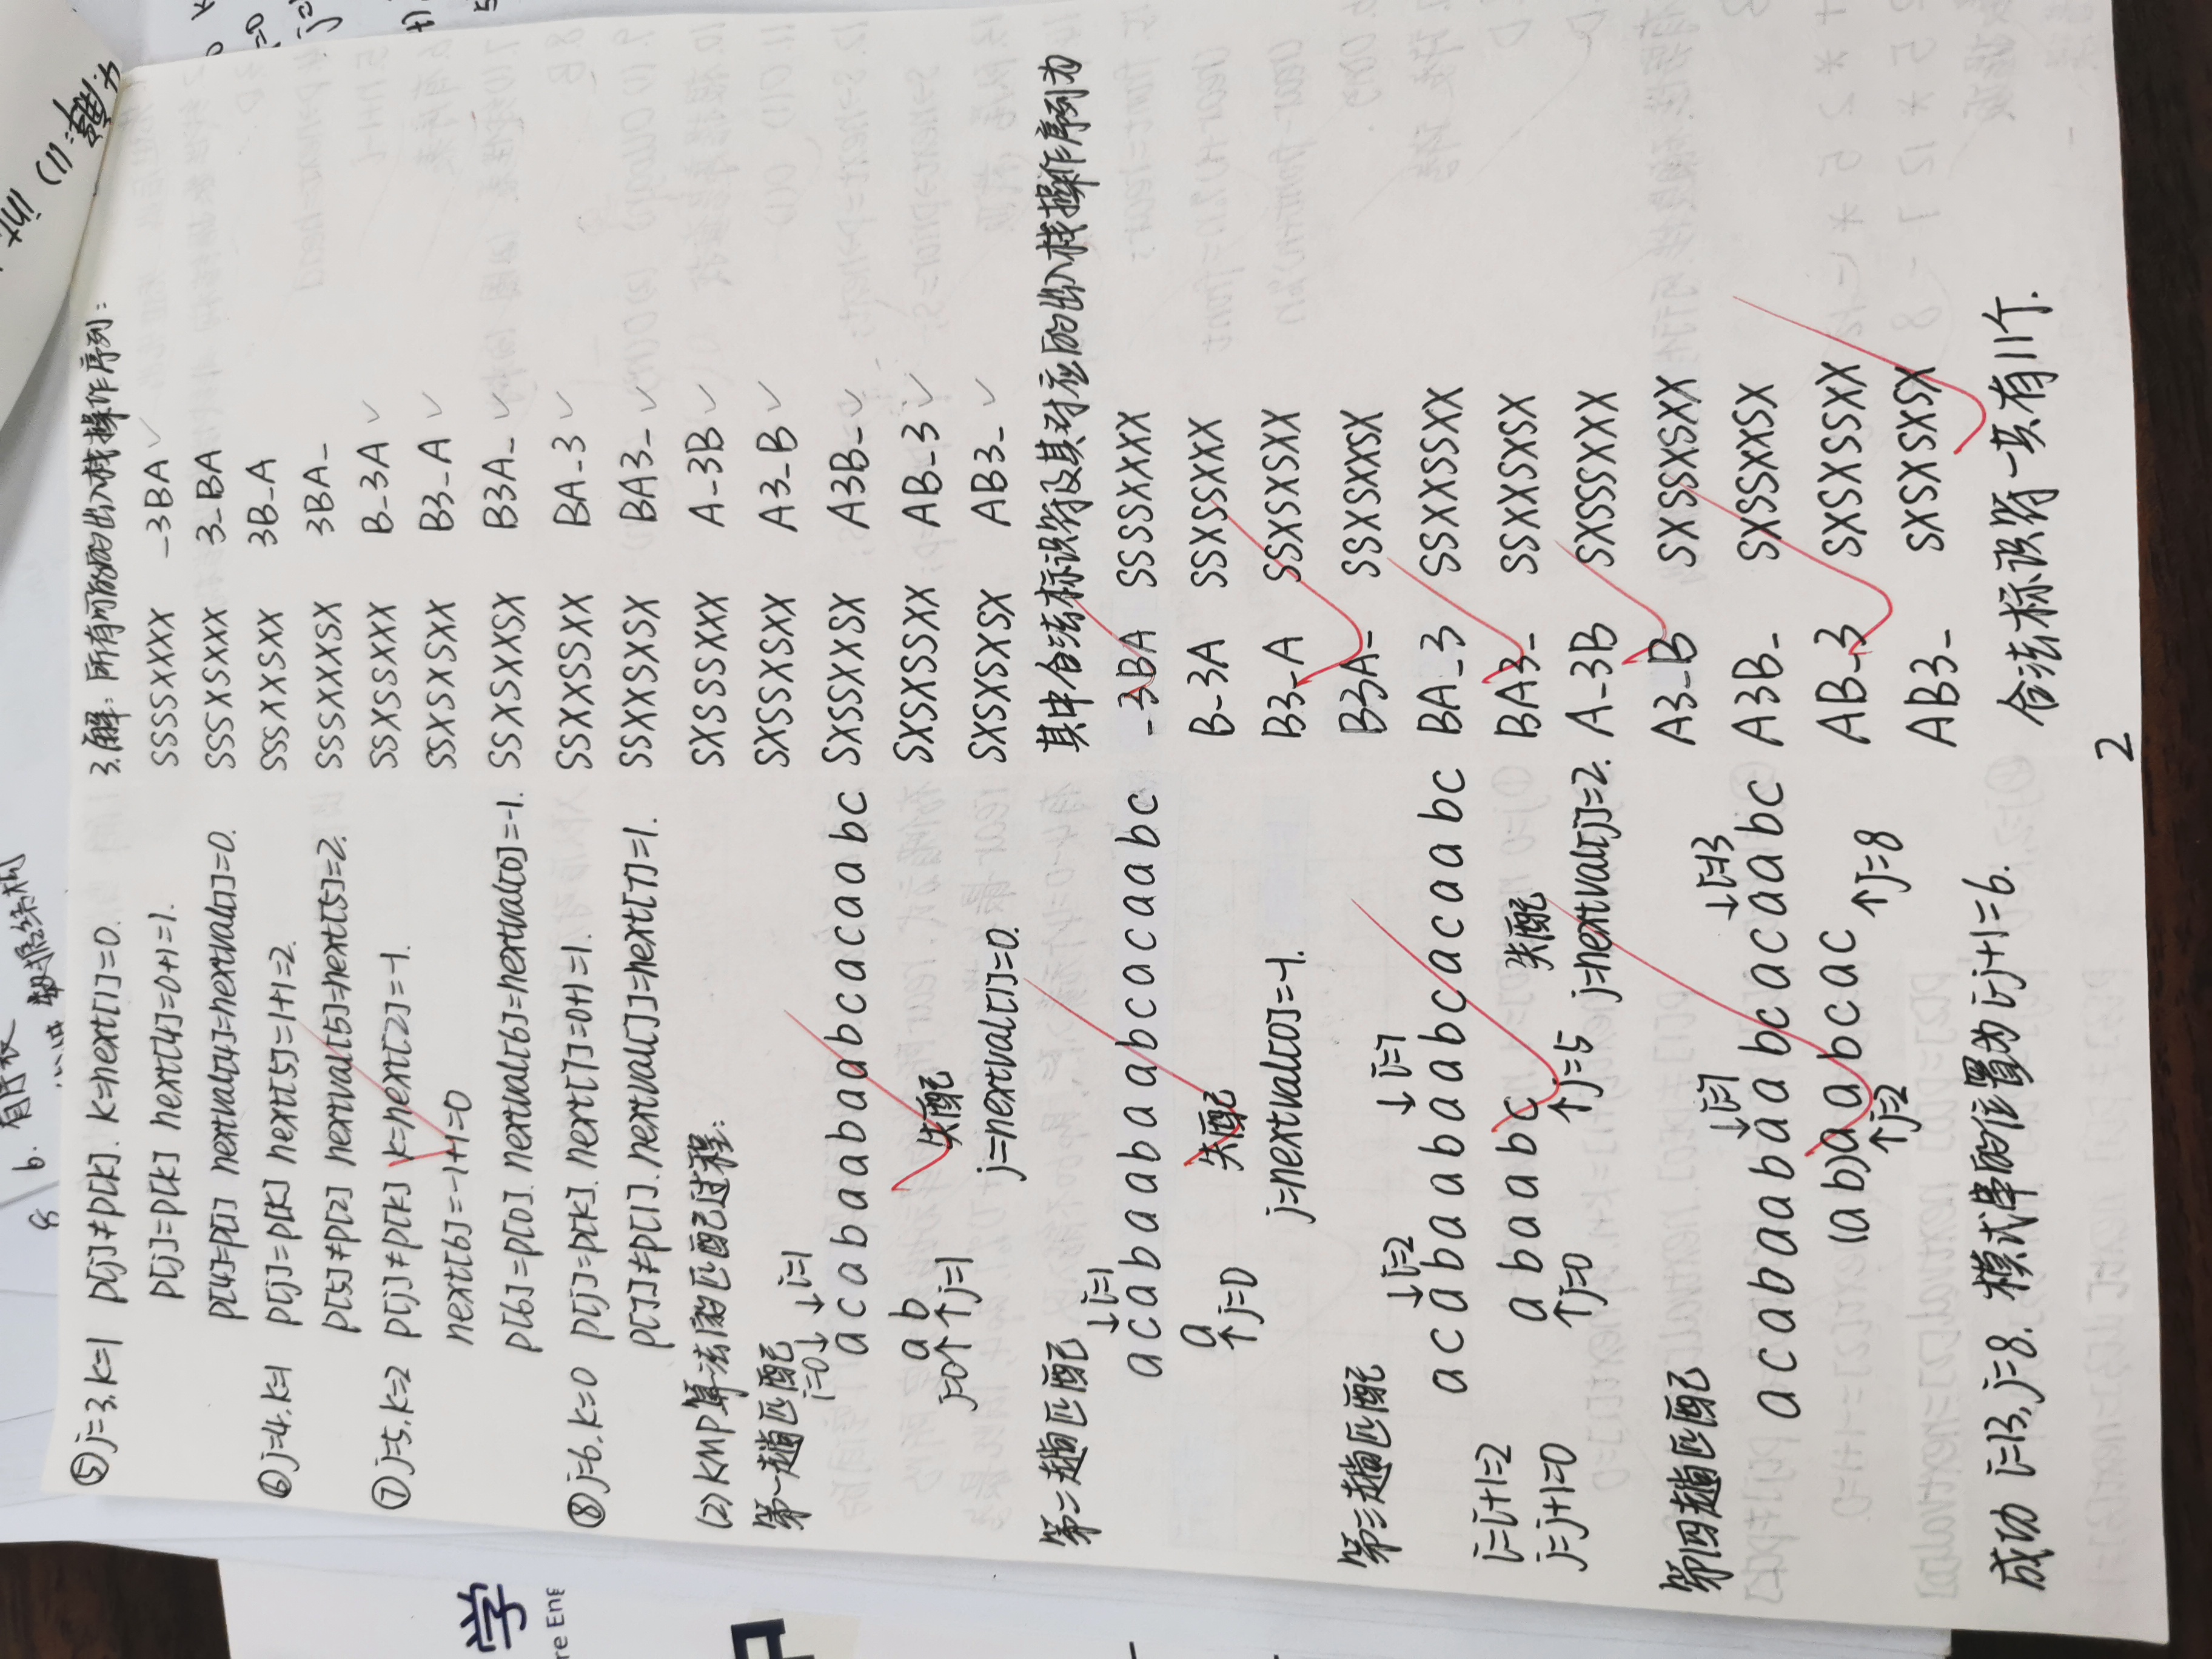 8 6. 有序表
数据结构
4.解：(1) int
学
re Eng
中
⑤j=3,k=1 p[j]≠p[k]. k=next[1]=0.
p[j]=p[k] next[4]=0+1=1.
p[4]=p[1] nextval[4]=nextval[1]=0.
⑥j=4,k=1 p[j]=p[k] next[5]=1+1=2.
p[5]≠p[2] nextval[5]=next[5]=2.
⑦j=5,k=2 p[j]≠p[k] k=next[2]=-1.
next[6]=-1+1=0
p[6]=p[0]. nextval[6]=nextval[0]=-1.
⑧j=6,k=0 p[j]=p[k]. next[7]=0+1=1.
p[7]≠p[1]. nextval[7]=next[7]=1.
(2)KMP算法的匹配过程:
第一趟匹配
i=0↓ ↓i=1
a c a b a a b a a b c a c a a b c
a b
j=0↑ ↑j=1 失配
j=nextval[1]=0.
第二趟匹配
↓i=1
a c a b a a b a a b c a c a a b c
a
↑j=0 失配
j=nextval[0]=-1.
第三趟匹配
↓i=2 ↓i=7
a c a b a a b a a b c a c a a b c
i=i+1=2
a b a a b c 失配
j=j+1=0
↑j=0 ↑j=5 j=nextval[j]=2.
第四趟匹配
↓i=7 ↓i=13
a c a b a a b a a b c a c a a b c
(a b)a a b c a c
↑j=2 ↑j=8
成功 i=13,j=8. 模式串的位置为i-j+1=6.
3.解：所有可能的出入栈操作序列：
SSSSXXXX _3BA ✓
SSSXSXXX 3_BA
SSSXXSXX 3B_A
SSSXXXSX 3BA_
SSXSSXXX B_3A ✓
SSXSXSXX B3_A ✓
SSXSXXSX B3A_ ✓
SSXXSSXX BA_3 ✓
SSXXSXSX BA3_ ✓
SXSSSXXX A_3B ✓
SXSSXSXX A3_B ✓
SXSSXXSX A3B_ ✓
SXSXSSXX AB_3 ✓
SXSXSXSX AB3_ ✓
其中合法标识符及其对应的出入栈操作序列为
_3BA SSSSXXXX
B_3A SSXSSXXX
B3_A SSXSXSXX
B3A_ SSXSXXSX
BA_3 SSXXSSXX
BA3_ SSXXSXSX
A_3B SXSSSXXX
A3_B SXSSXSXX
A3B_ SXSSXXSX
AB_3 SXSXSSXX
AB3_ SXSXSXSX
合法标识符一共有11个.
2